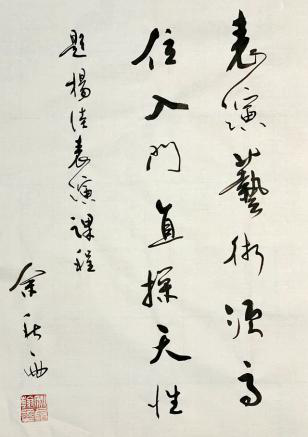 表演藝術須高
位入門直探天性
題楊佳表演課程
余秋雨